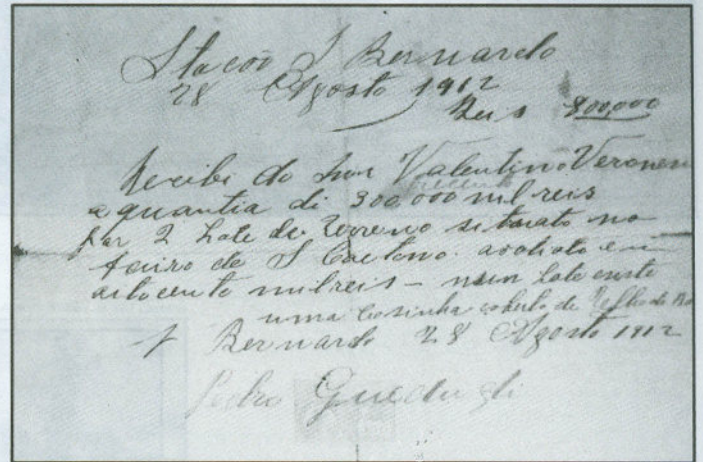 Stacoo S Bernardo
28 Agosto 1912
Reis 800,000
Recibi do Snr Valentino Veronesi
a quantia di 300,000 mil reis
par 2 Lote de Terreno situato no
fairo de S Caetano. avaliato em
oitocento milreis - num lote existe
uma Cosinha coberto de
S Bernardo 28 Agosto 1912
Pedro